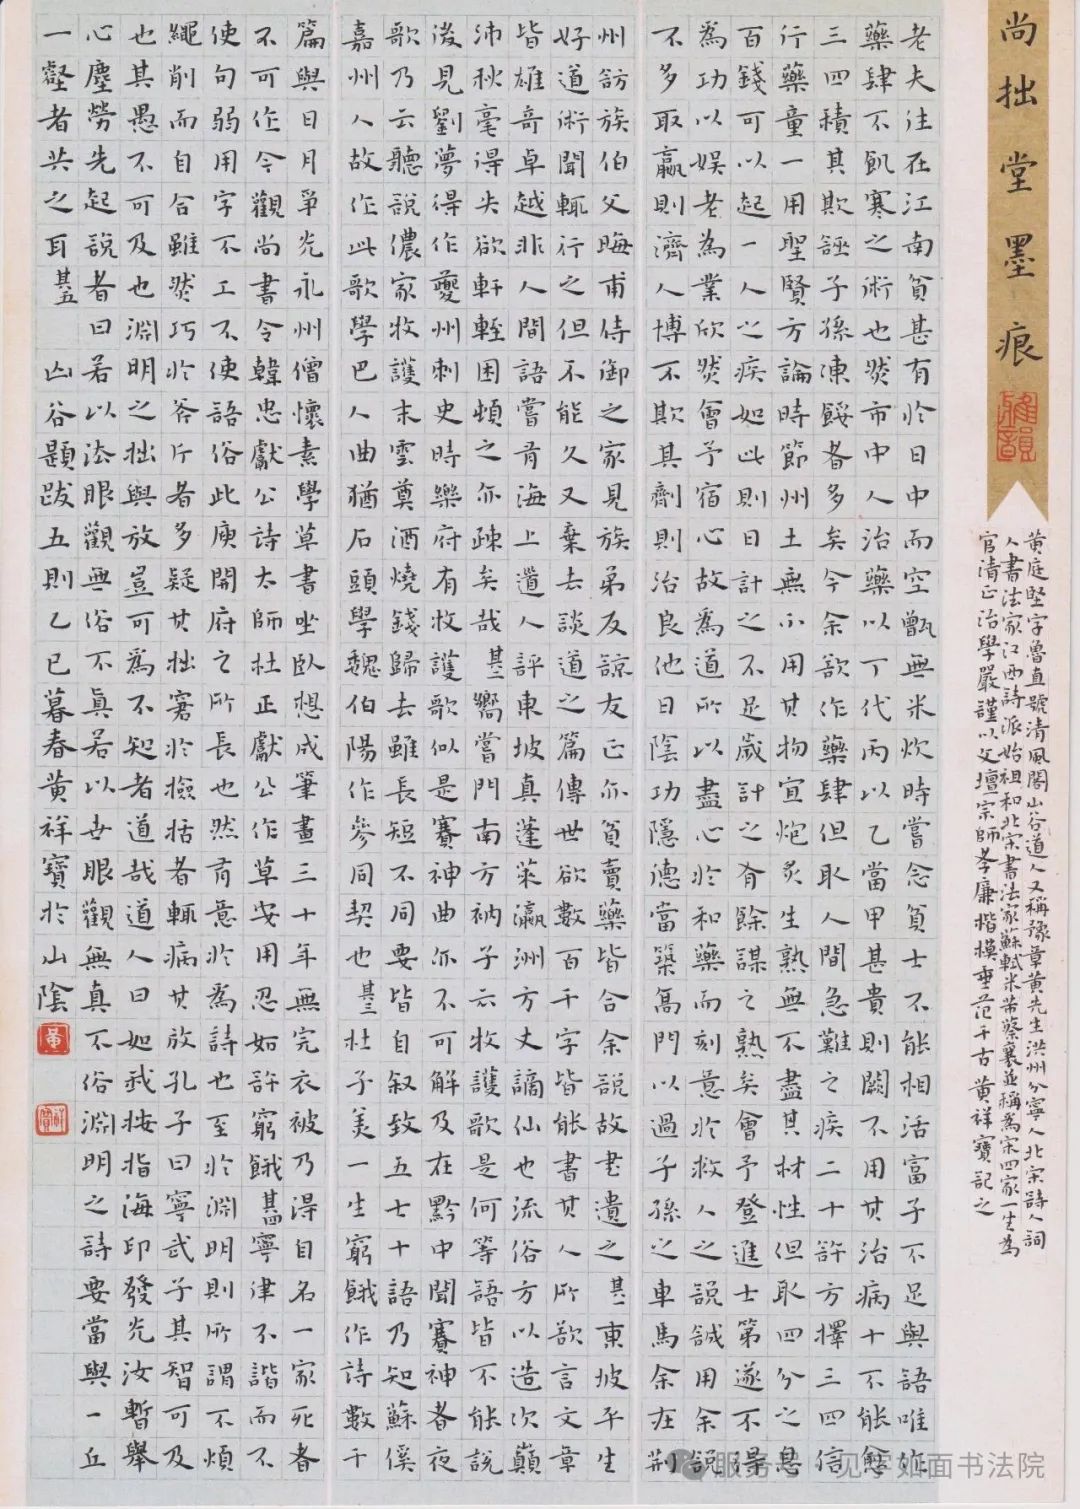 尚拙堂墨痕
黄庭堅字魯直號清風閣山谷道人又稱豫章黄先生洪州分寧人北宋詩人詞
人書法家江西詩派始祖和北宋書法家蘇軾米芾蔡襄並稱為宋四家一生為
官清正治學嚴謹以文壇宗師孝廉楷模垂范千古黄祥寶記之
老夫往在江南貧甚有於日中而空甑無米炊時嘗念貧士不能相活富子不足與語唯作
藥肆不飢寒之術也然市中人治藥以丁代丙以乙當甲甚貴則闕不用其治病十不能愈
三四積其欺誣子孫凍餒者多矣今余欲作藥肆但取人間急難之疾二十許方擇三四信
行藥童一用聖賢方論時節州土無不用其物宜炮炙生熟無不盡其材性但取四分之息
百錢可以起一人之疾如此則日計之不足歲計之有餘謀之熟矣會予登進士第遂不得
為功以娱老為業欣然會予宿心故為道所以盡心於和藥而刻意於救人之說誠用余說
不多取贏則濟人博不欺其劑則治良他日陰功隱德當築高門以過子孫之車馬余在荆
州訪族伯父晦甫侍御之家見族弟友諒友正亦貧賣藥皆合余說故書遺之其一東坡平生
好道術聞輒行之但不能久又棄去談道之篇傳世欲數百千字皆能書其人所欲言文章
皆雄奇卓越非人間語嘗有海上道人評東坡真蓬萊瀛洲方丈謫仙也流俗方以造次顛
沛秋毫得失欲軒輊困頓之亦疎矣哉其二嚮嘗門南方衲子云牧護歌是何等語皆不能說
後見劉夢得作夔州刺史時樂府有牧護歌似是賽神曲亦不可解及在黔中聞賽神者夜
歌乃云聽說儂家牧護末雲奠酒燒錢歸去雖長短不同要皆自叙致五七十語乃知蘇傒
嘉州人故作此歌學巴人曲猶石頭學魏伯陽作參同契也其三杜子美一生窮餓作詩數千
篇與日月爭光永州僧懷素學草書坐臥想成筆畫三十年無完衣被乃得自名一家死者
不可作今觀尚書令韓忠獻公詩太師杜正獻公作草安用忍如許窮餓其四寧律不諧而不
使句弱用字不工不使語俗此庾開府之所長也然有意於為詩也至於淵明則所謂不煩
繩削而自合雖然巧於斧斤者多疑其拙窘於檢括者輒病其放孔子曰寧武子其智可及
也其愚不可及也淵明之拙與放豈可為不知者道哉道人曰如我按指海印發光汝暫舉
心塵勞先起說者曰若以法眼觀無俗不真若以世眼觀無真不俗淵明之詩要當與一丘
一壑者共之耳其五 山谷題跋五則乙巳暮春黄祥寶於山陰
服务号 · 见字如面书法院